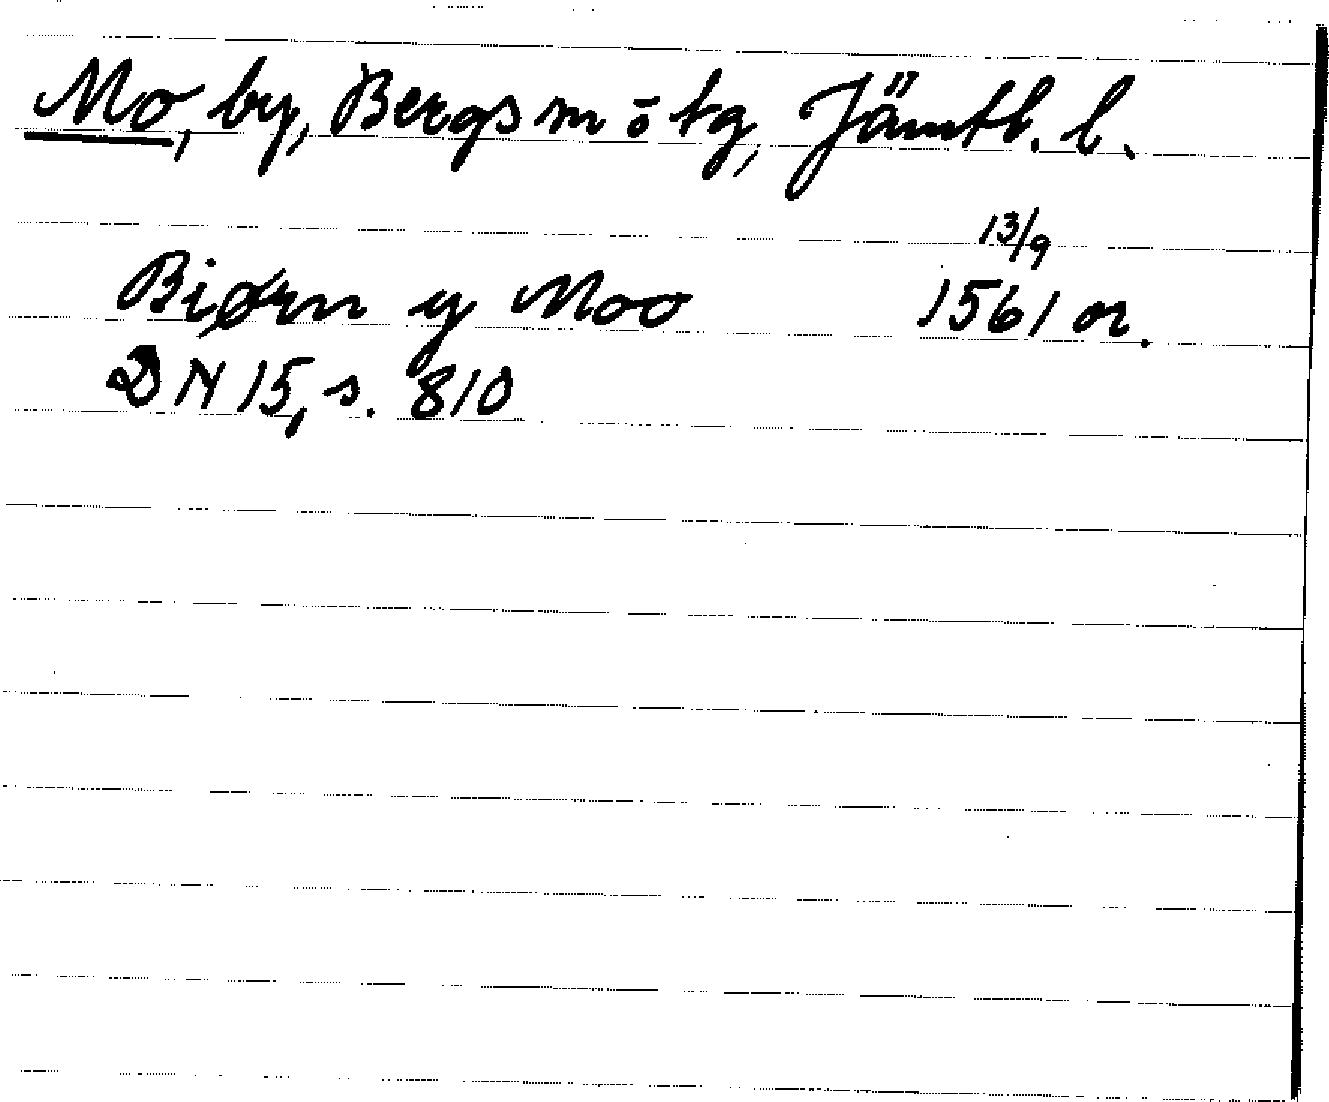 Mo, by, Bergs sn o tg, Jämtl. l.
13/9
Biørn y Moo 1561 or.
DN 15, s. 810